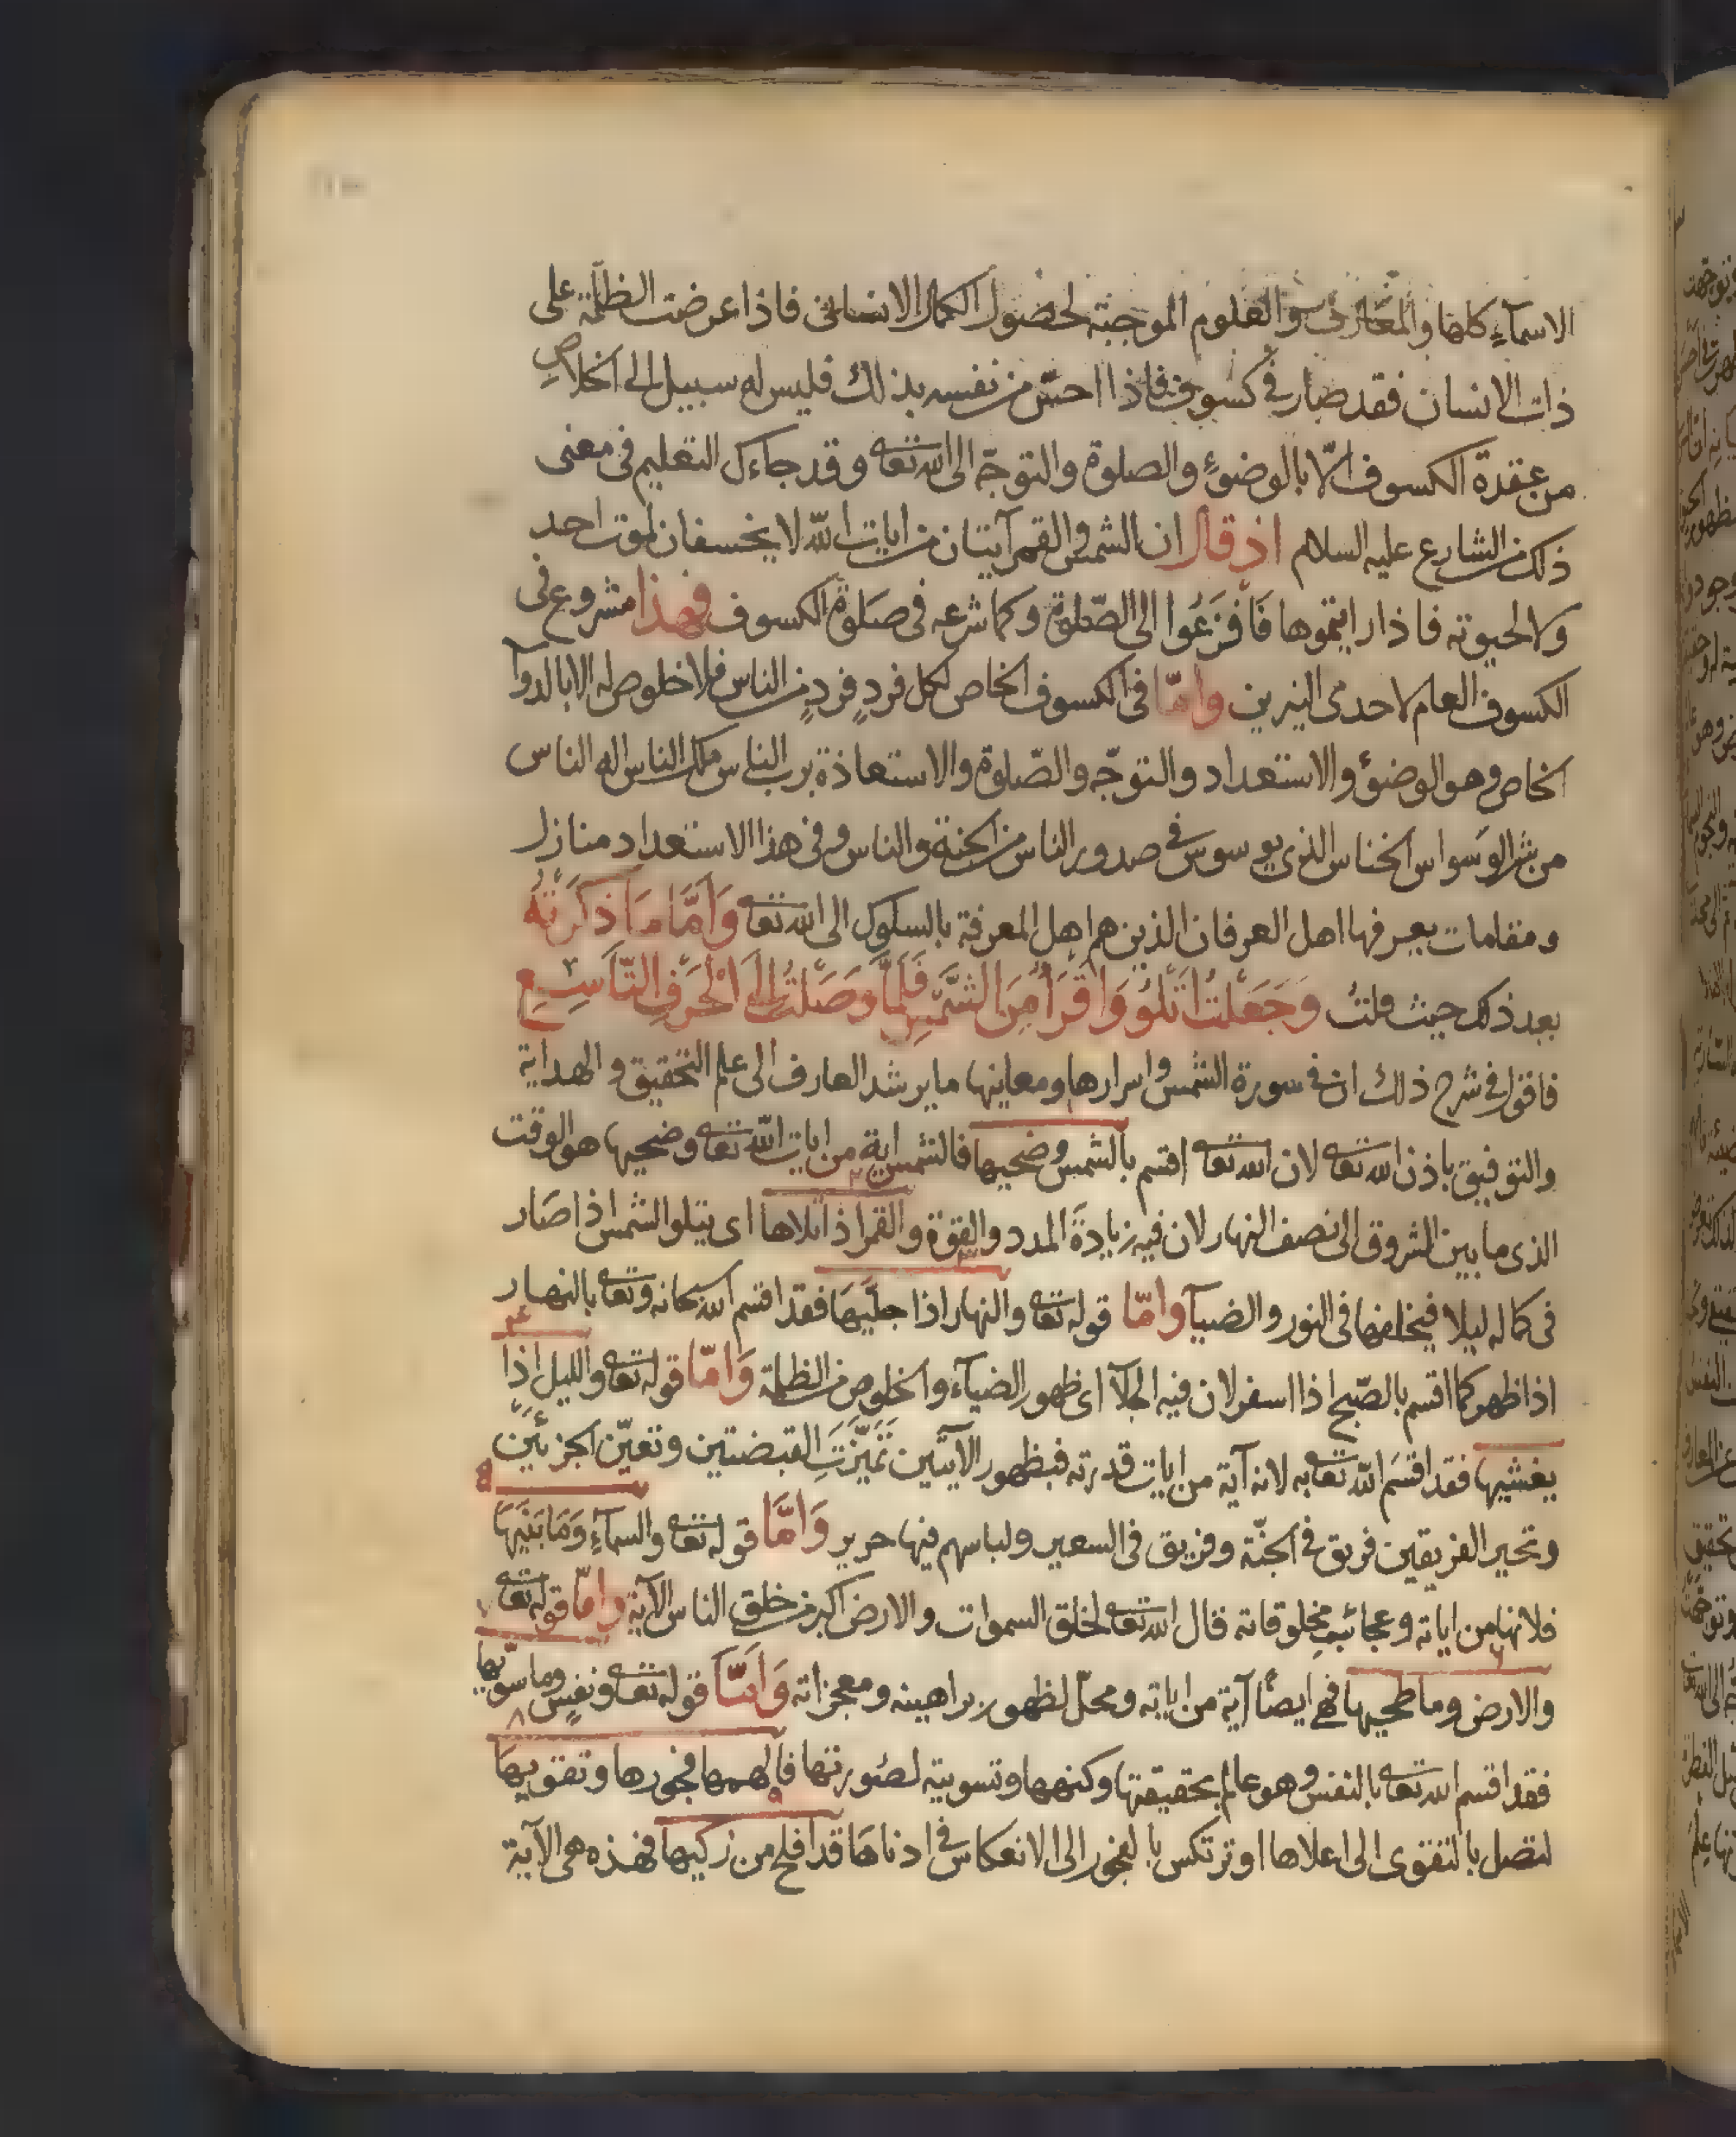 الاسمآء كلها والمعارف والعلوم الموجبة لحصول الكمال الانسانى فاذا عرضت الظلمة على
ذات الانسان فقد صار فى كسوف فاذا احسّ من نفسه بذلك فليس له سبيل الى اخلاص
من عقدة الكسوف الّا بالوضوء والصلوة والتوجّه الى الله تعا وقد جاءك التعليم فى معنى
ذلك من الشارع عليه السلام اذ قال ان الشمس والقمر آيتان من ايات الله لا يخسفان لموت احد
ولا لحيوته فاذا رايتموها فَافزَعُوا الى الصّلوة وكما شرعه فى صَلوة الكسوف فهذا مشروع فى
الكسوف العام لاحدى النيرين وامّا فى الكسوف الخاص لكل فردٍ فردٍ من الناس فلا خلوص له الا بالدوآ
الخاص وهو الوضؤ والاستعداد والتوجّه والصّلوة والاستعاذة برب الناس ملك الناس اله الناس
من شر الوَسواس الخناس الذى يوسوس فى صدور الناس من الجنة والناس وفى هذا الاستعداد منازل
ومقامات يعرفها اهل العرفان الذين هم اهل المعرفة بالسلوك الى الله تعا وَاَمَّا مَا ذَكَرْتُهُ
بعد ذلك حيث قلتُ وَجَعَلْتُ اَتْلُو وَاَقْرَأُ مِنَ الشَّمْسِ فَلَمَّا وَصَلْتُ اِلَى الْحَرْفِ التَّاسِعِ
فاقول فى شرح ذلك ان فى سورة الشمس واسرارها ومعاينها ما يرشد العارف الى علم التحقيق والهداية
والتوفيق باذن الله تعا لان الله تعا اقسم بالشمس وضحيها فالشمس اية من ايات الله تعا وضحيها هو الوقت
الذى ما بين الشروق الى نصف النهار لان فيه زيادةَ المدد والقوة والقمر اذا تلاها اى يتلو الشمس اذا صَار
فى كماله ليلا فيخلفها فى النور والضيآ وامّا قوله تعا والنهار اذا جلّيهَا فقد اقسم الله سبحانه وتعا بالنهار
اذا ظهر كما اقسم بالصّبح اذا اسفر لان فيه الجلآ اى ظهور الضيآء والخلوص من الظلمة وَامّا قوله تعا والليل اذا
يغشيها فقد اقسَم الله تعا به لانه آية من ايات قدرته فبظهور الآيتين تَمَيَّزَتِ القبضتين وتعيّن الجزئين
وتحير الفريقين فريق فى الجنّة وفريق فى السعير ولباسهم فيها حرير وَامَّا قوله تعا والسمآءِ وَمَا بَنَيهَا
فلانها من اياته وعجائب مخلوقاته قال الله تعا لخلق السموات والارض اكبر من خلق الناس الآية وامّا قوله تعا
والارض وما طحيها فهى ايضًا آية من اياته ومحلّ لظهور براهينه ومعجزاته وَامَّا قوله تعا ونفسٍ وما سوّيها
فقد اقسم الله تعا بالنفس وهو عالم بحقيقتها وكنهها وتسويته لصُورتها فالهمها فجورها وتقويهَا
لتصل بالتقوى الى اعلاها او ترتكس بالفجور الى الانعكاس فى ادناهَا قد افلح من زكيها فهذه هى الآية